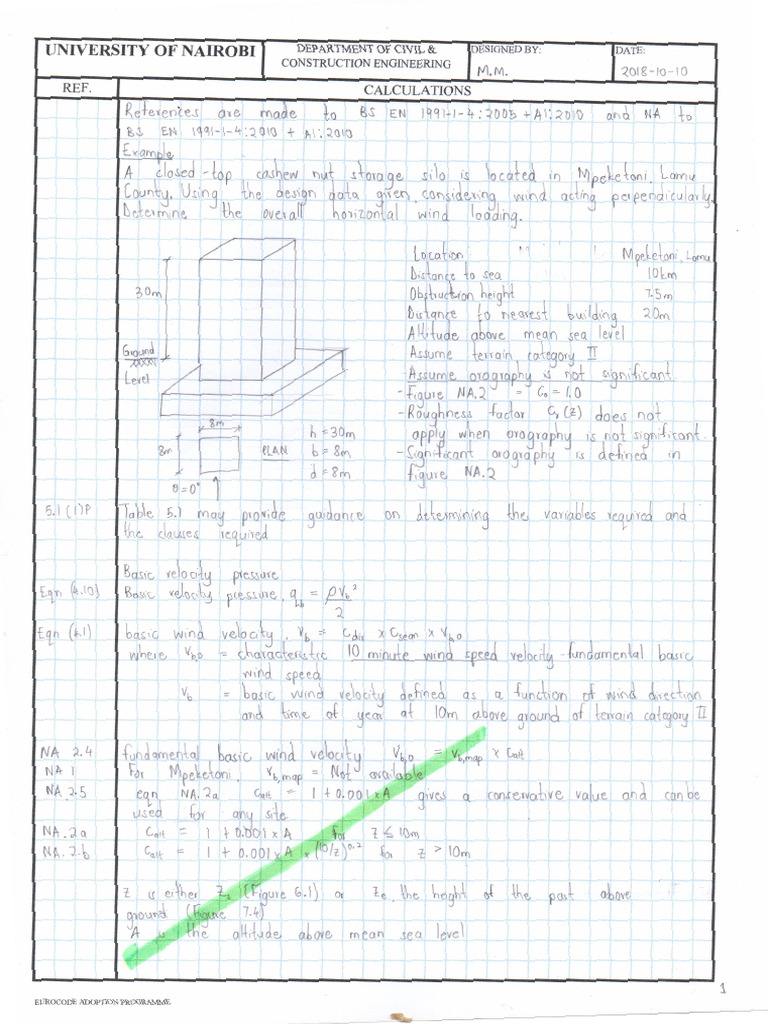 UNIVERSITY OF NAIROBI
DEPARTMENT OF CIVIL &
CONSTRUCTION ENGINEERING
DESIGNED BY:
M.M.
DATE:
2018-10-10
REF.
CALCULATIONS
References are made to BS EN 1991-1-4:2005 + A1:2010 and NA to
BS EN 1991-1-4:2010 + A1:2010
Example
A closed-top cashew nut storage silo is located in Mpeketoni, Lamu
County. Using the design data given, considering wind acting perpendicularly,
Determine the overall horizontal wind loading.
30m
Ground
Level
8m
8m
PLAN
θ=0°
h = 30m
b = 8m
d = 8m
Location Mpeketoni, Lamu
Distance to sea 10km
Obstruction height 7.5m
Distance to nearest building 20m
Altitude above mean sea level
Assume terrain category II
-Assume orography is not significant
-Figure NA.2 = Co = 1.0
-Roughness factor Cr(z) does not
apply when orography is not significant.
-Significant orography is defined in
figure NA.2
5.1(1)P Table 5.1 may provide guidance on determining the variables required and
the clauses required
Basic velocity pressure
Eqn (4.10) Basic velocity pressure, qb = ρVb²/2
Eqn (4.1) basic wind velocity, Vb = Cdir × Cseason × Vb,0
where Vb,0 = characteristic 10 minute wind speed velocity-fundamental basic
wind speed
Vb = basic wind velocity defined as a function of wind direction
and time of year at 10m above ground of terrain category II
NA 2.4 fundamental basic wind velocity Vb,0 = Vb,map × Calt
NA 1 For Mpeketoni, Vb,map = Not available
NA 2.5 eqn NA.2a Calt = 1 + 0.001 × A gives a conservative value and can be
used for any site
NA.2a Calt = 1 + 0.001 × A for z ≤ 10m
NA.2.b Calt = 1 + 0.001 × A × (10/z)^0.2 for z > 10m
z is either Zs (Figure 6.1) or Ze, the height of the part above
ground (Figure 7.4)
A is the altitude above mean sea level
1
EUROCODE ADOPTION PROGRAMME